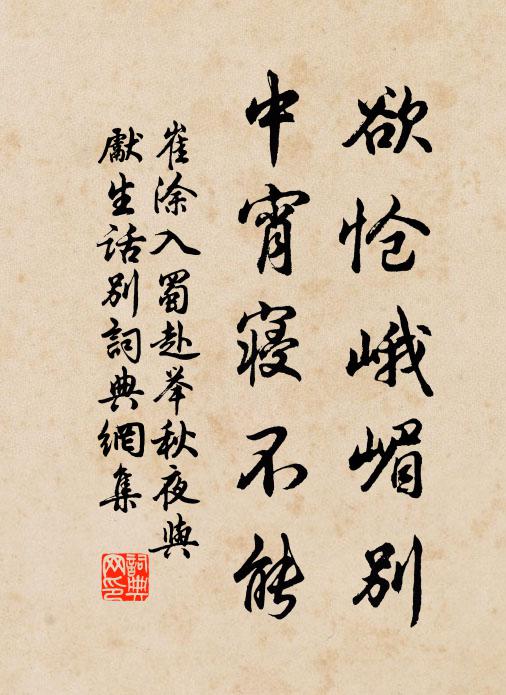 欲怆峨嵋别
中宵寝不能
崔涂入蜀赴举秋夜與
獻生话别詞典網集
詞典
网印